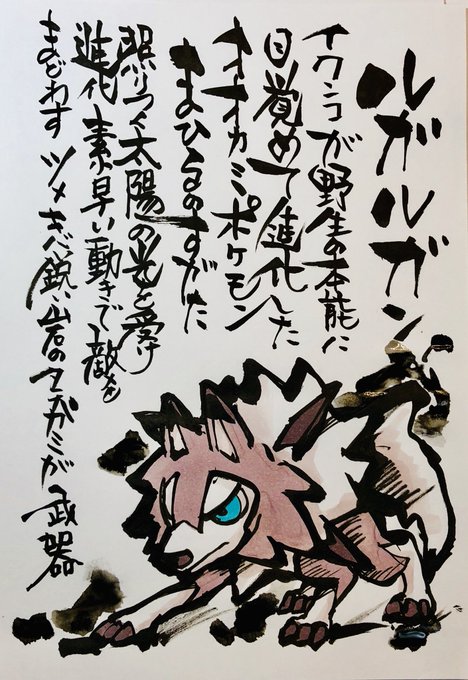 ルガルガン
イワンコが野生の本能に
目覚めて進化した
オオカミポケモン
まひるのすがた
照りつく太陽の光を受け
進化し素早い動きで敵を
まどわす ツメ キバ 鋭い岩のタテガミが 武器